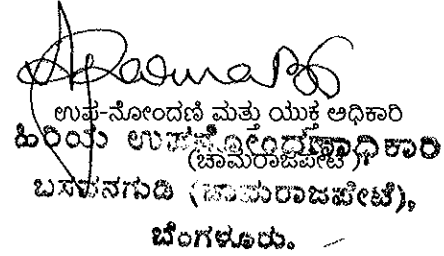 ಉಪ-ನೋಂದಣಿ ಮತ್ತು ಯುಕ್ತ ಅಧಿಕಾರಿ
ಹಿರಿಯ ಉಪನೋಂದಣಾಧಿಕಾರಿ
(ಚಾಮರಾಜಪೇಟೆ)
ಬಸವನಗುಡಿ (ಚಾಮರಾಜಪೇಟೆ),
ಬೆಂಗಳೂರು.